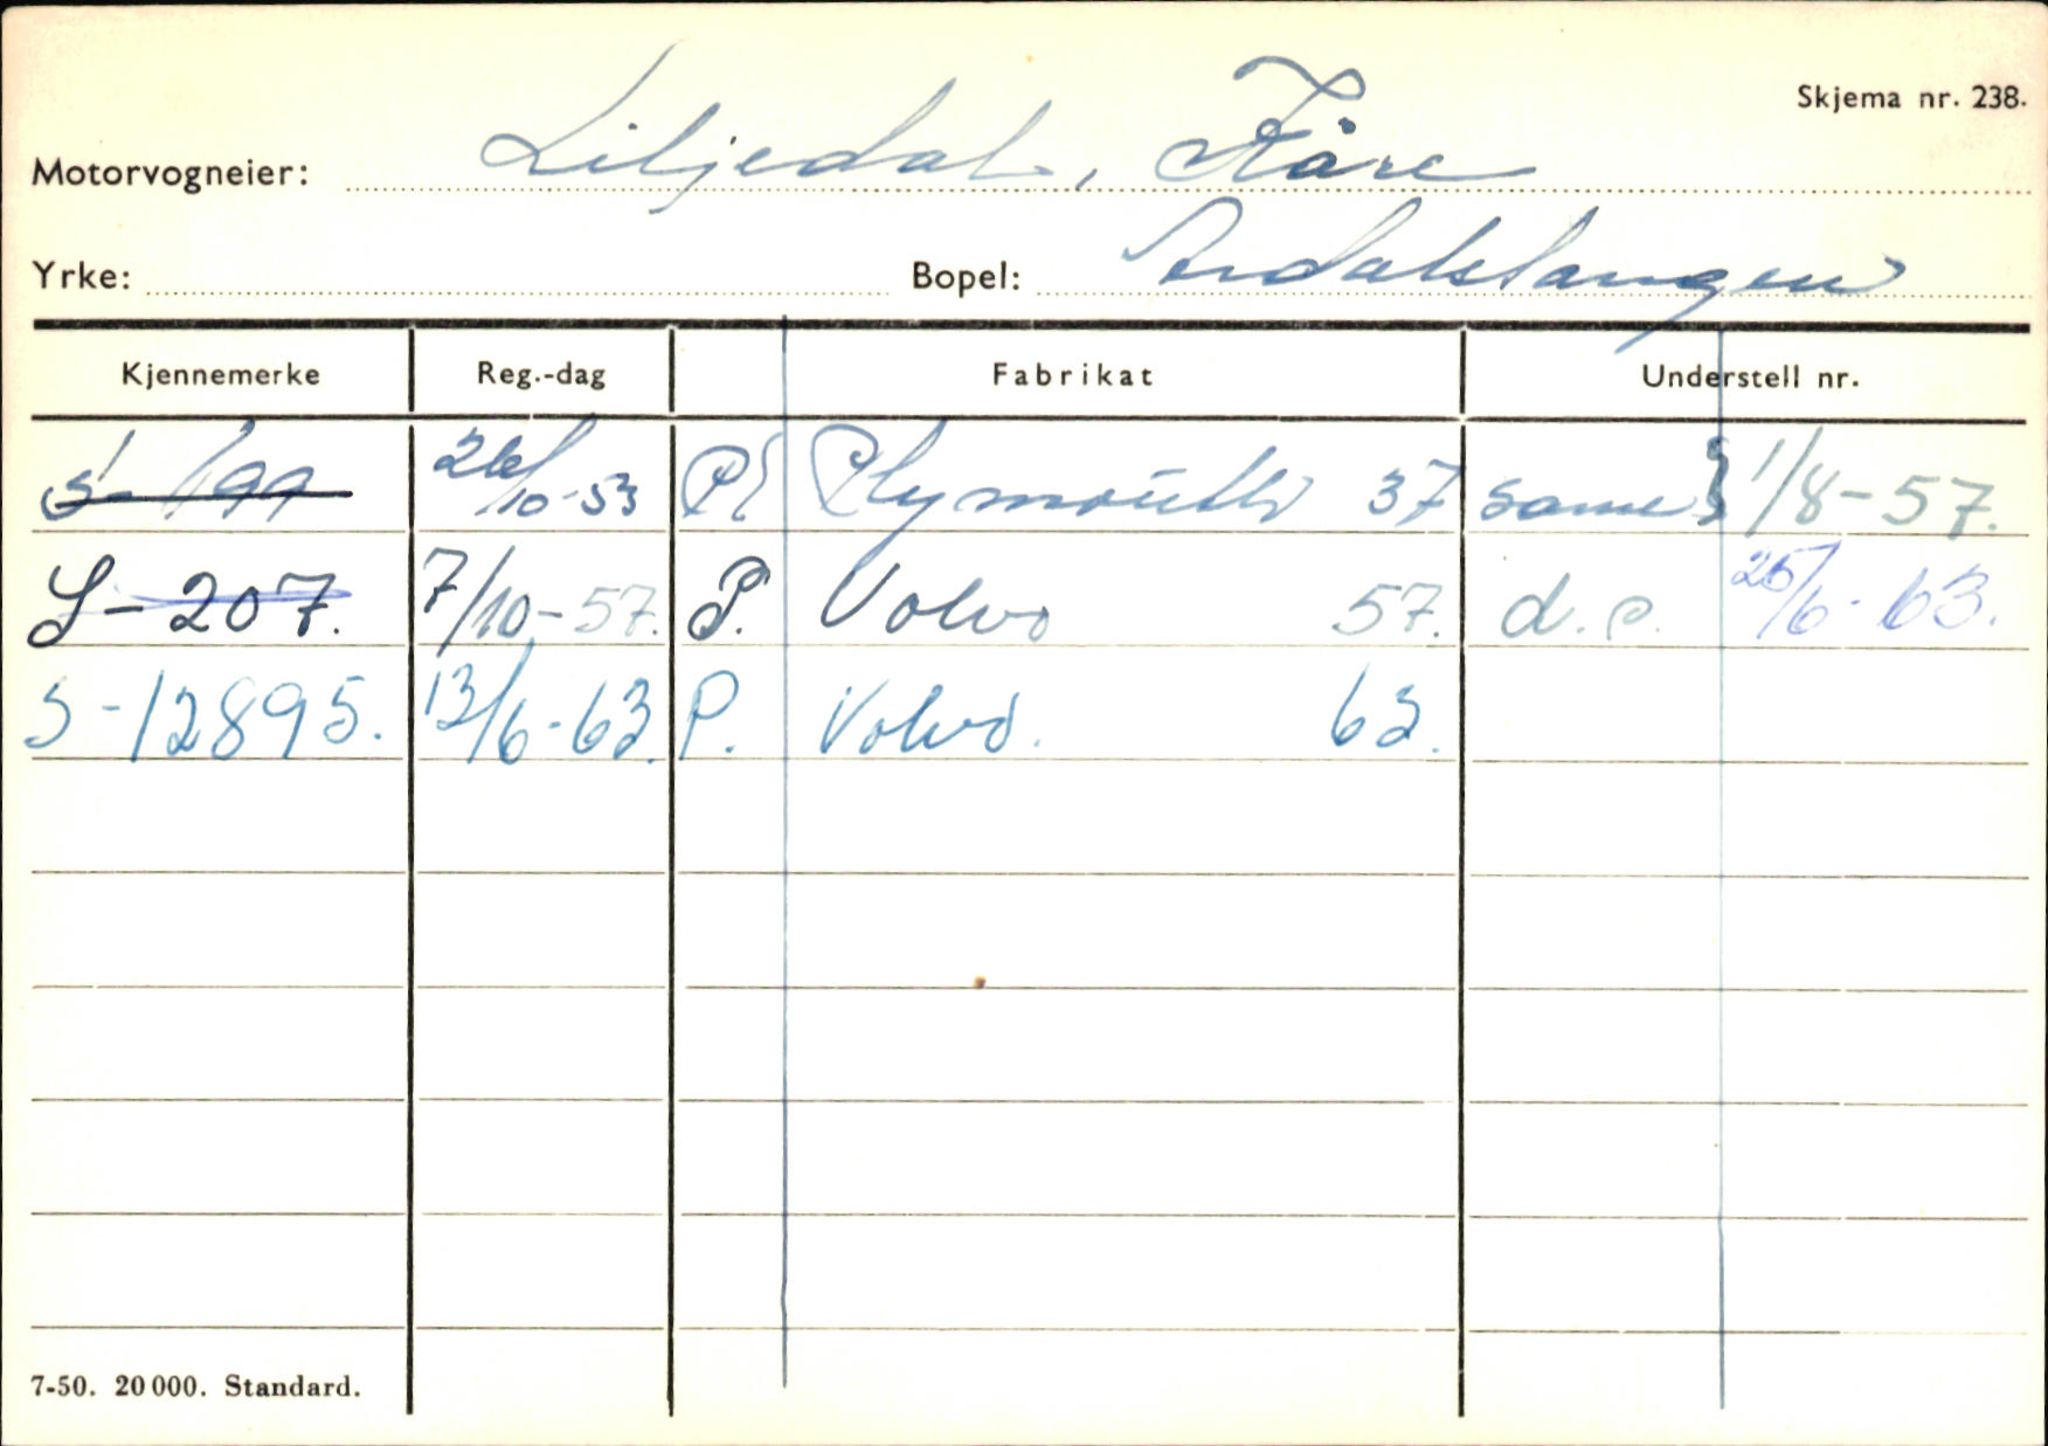 Skjema nr. 238.
Motorvogneier: Liljedal, Kåre
Yrke: Bopel: Årdalstangen
Kjennemerke Reg.-dag Fabrikat Understell nr.
S-199 26/10-53 Pl Plymouth 37 same } 1/8-57.
S-207. 7/10-57. P. Volvo 57. d.o. 25/6-63.
S-12895. 13/6-63. P. Volvo. 63.
7-50. 20 000. Standard.